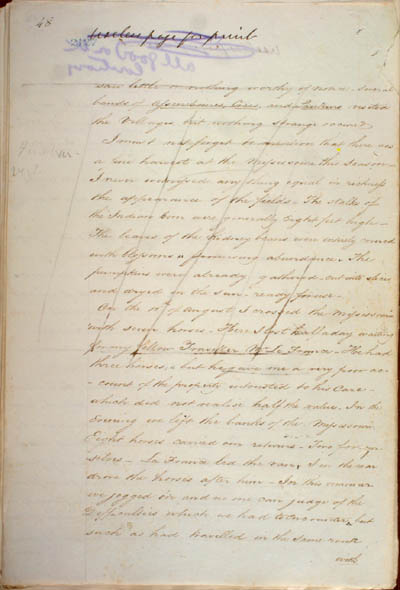 48
useless page for print
all good
saw little or nothing worthy of notice, several
bands of Assiniboines, Crees, and visited
the Villages but nothing strange occurred
I must not forget to mention that there was
a fair harvest at the Missisourie this season
I never any thing equal in richness
the appearance of the fields. The stalks of
the Indian Corn were generally Eight feet high
The leaves of the Kidney beans were entirely covered
with blossoms promising abundance. The
pumpkins were already gathered cut into slices
and dryed in the sun ready for use.
On the 14th of August I crossed the Missisourie
with seven horses. Here I lost half a day waiting
for my fellow Traveller Mr La France. He had
three horses, but gave me a very poor ac-
count of the property intrusted to his Care
which did not realise half the value. In the
Evening we left the banks of the Missisourie
Eight horses carried our returns Two for our-
selves La France led the van, I in the rear
drove the horses after him. In this manner
we jogged on and no one can judge of the
Difficulties which we had to encounter, but
such as had travelled in the same route
with